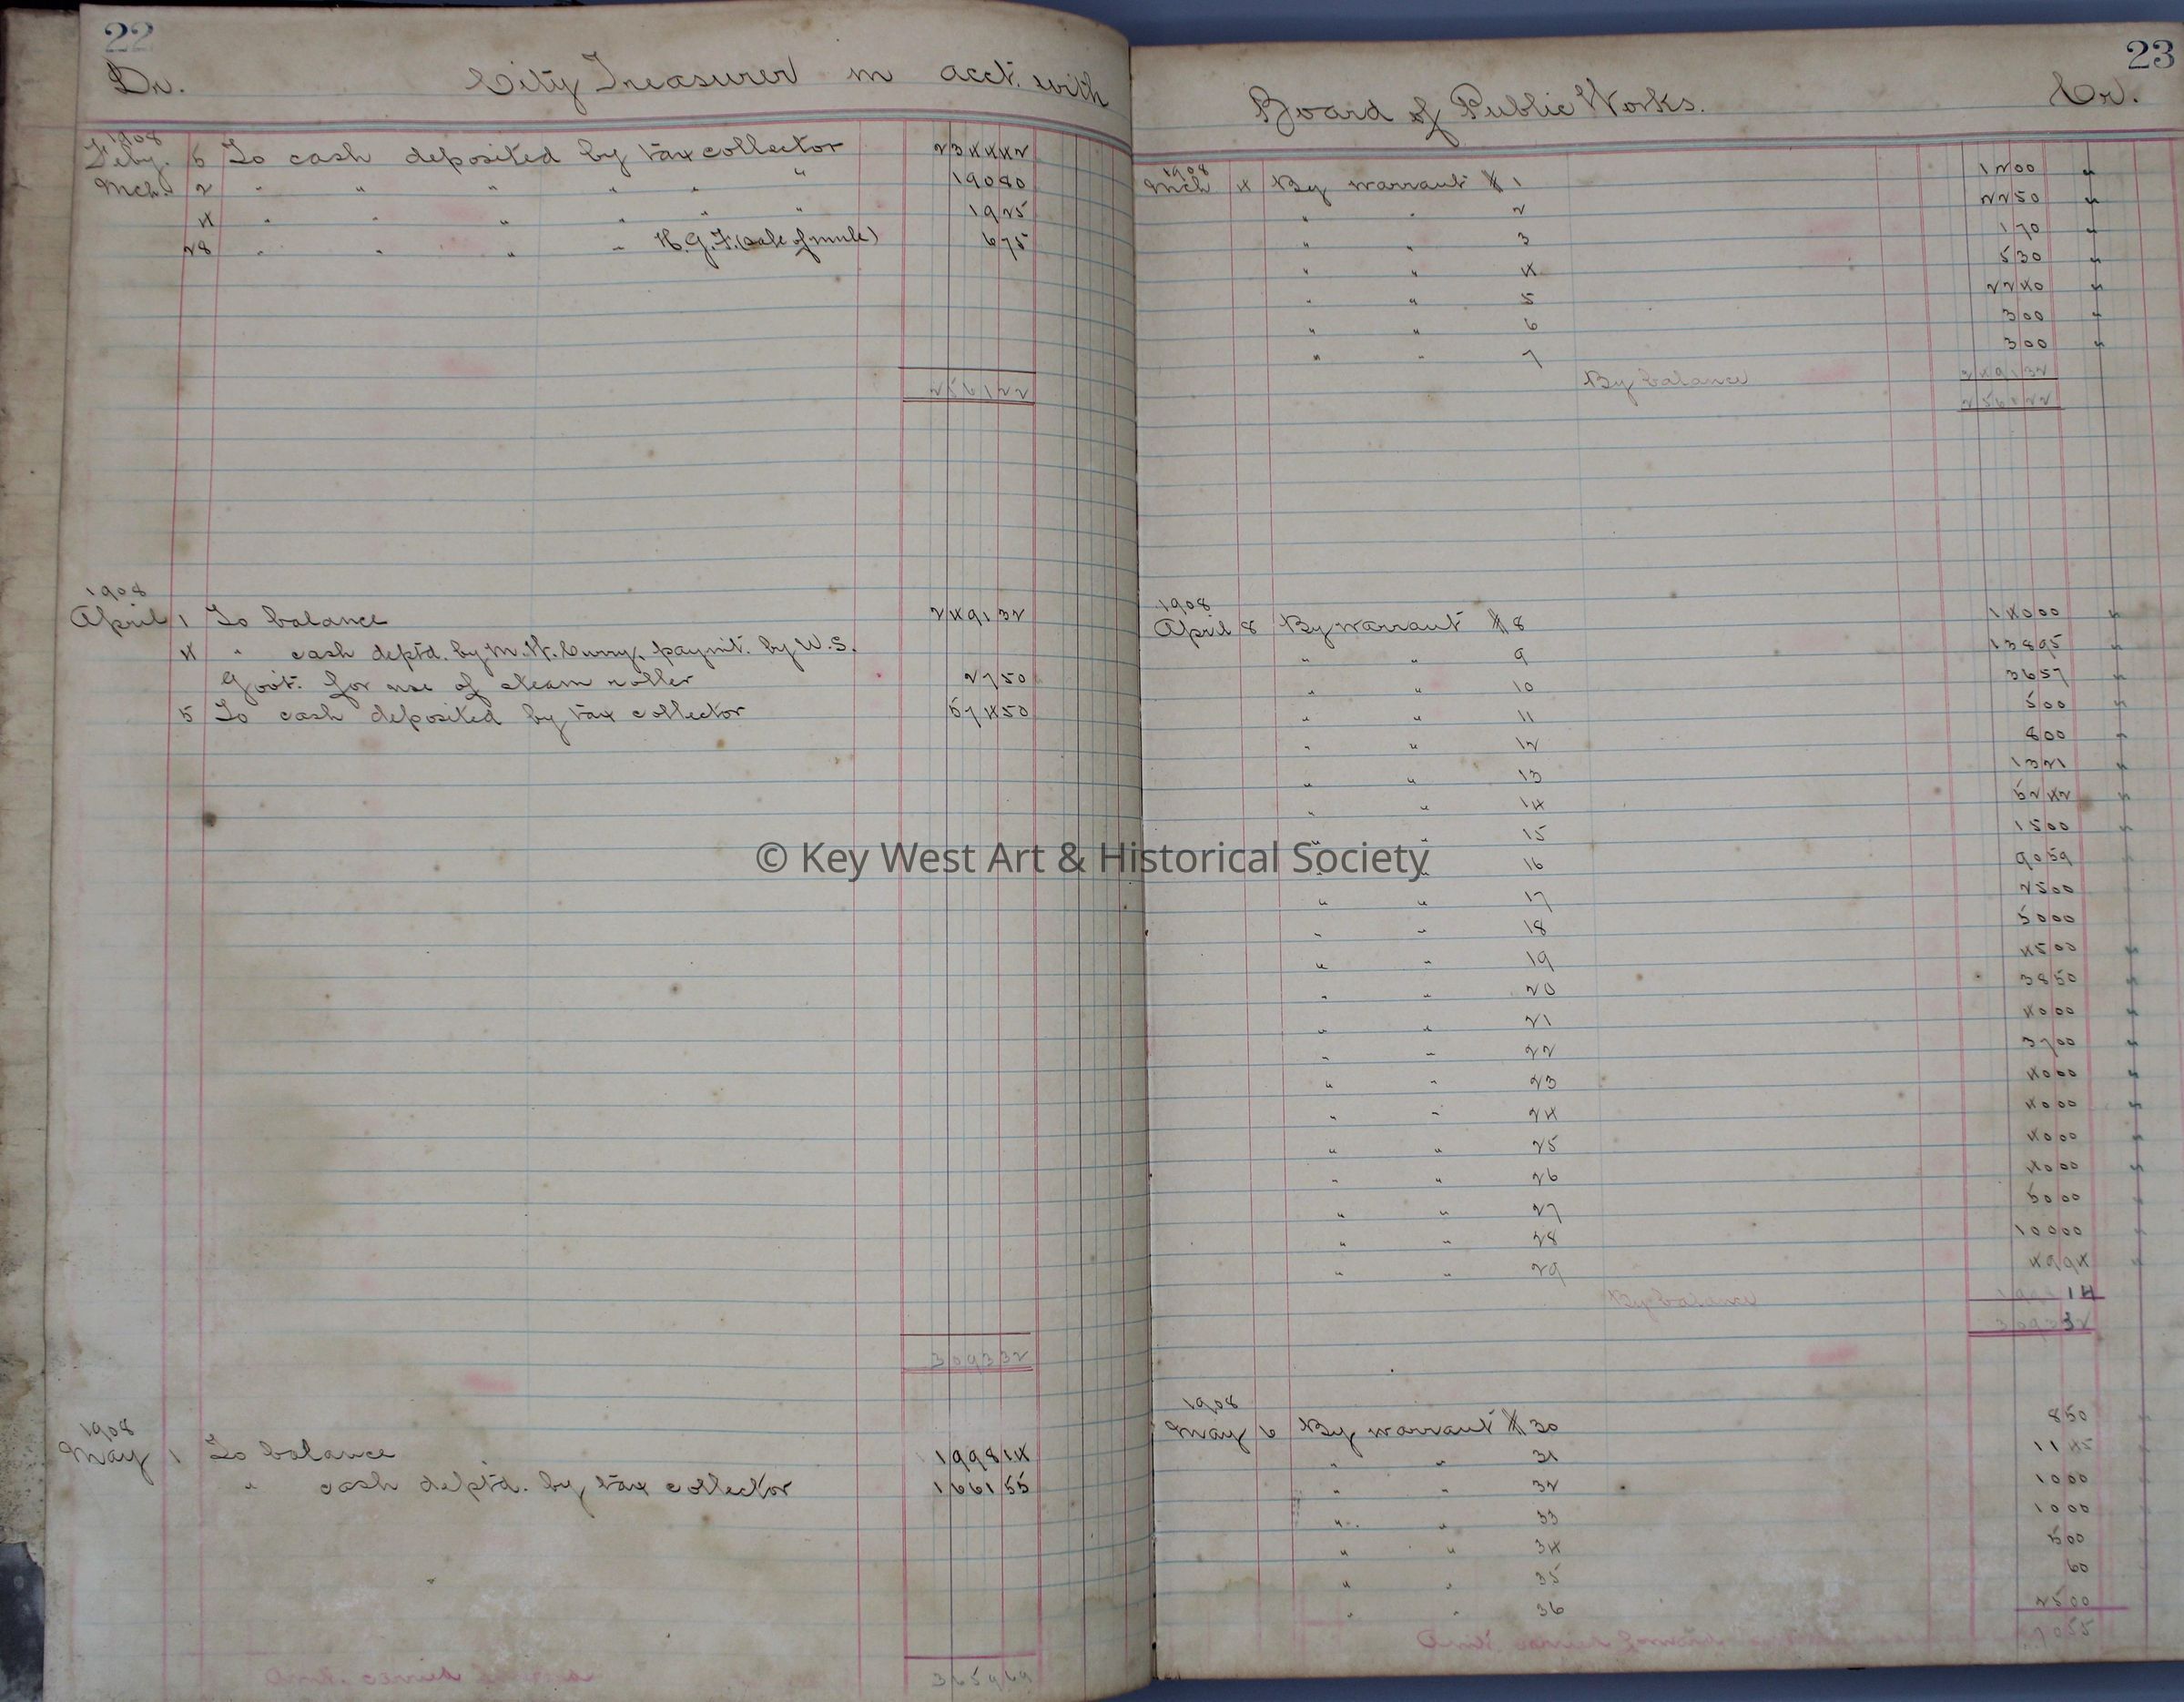 22
Dr. City Treasurer in acct. with
1908
Feby. 5 To cash deposited by tax collector 2344 42
Mch. 2 " " " " " " 190 80
4 " " " " " " 19 25
28 " " " " H.G.F. (sale of mule) 6 75
2561 22
1908
April 1 To balance 2491 32
4 " cash deptd. by M.W. Curry, paymt. by U.S.
Govt. for use of steam roller 27 50
5 To cash deposited by tax collector 574 50
3093 32
1908
May 1 To balance 1998 14
" cash deptd. by tax collector 1661 55
Amt. carried forward 3659 69
23
Board of Public Works. Cr.
1908
Mch 4 By warrant # 1 12 00
" " 2 22 50
" " 3 1 70
" " 4 5 30
" " 5 22 40
" " 6 3 00
" " 7 3 00
By balance 2491 32
2561 22
1908
April 8 By warrant # 8 140 00
" " 9 138 95
" " 10 36 57
" " 11 5 00
" " 12 8 00
" " 13 13 21
" " 14 52 42
" " 15 15 00
" " 16 90 59
" " 17 25 00
" " 18 50 00
" " 19 45 00
" " 20 38 50
" " 21 40 00
" " 22 37 00
" " 23 40 00
" " 24 40 00
" " 25 40 00
" " 26 40 00
" " 27 50 00
" " 28 100 00
" " 29 49 94
By balance 1998 14
3093 32
1908
May 6 By warrant # 30 8 50
" " 31 11 45
" " 32 10 00
" " 33 10 00
" " 34 5 00
" " 35 60
" " 36 25 00
Amt. carried forward 70 55
© Key West Art & Historical Society